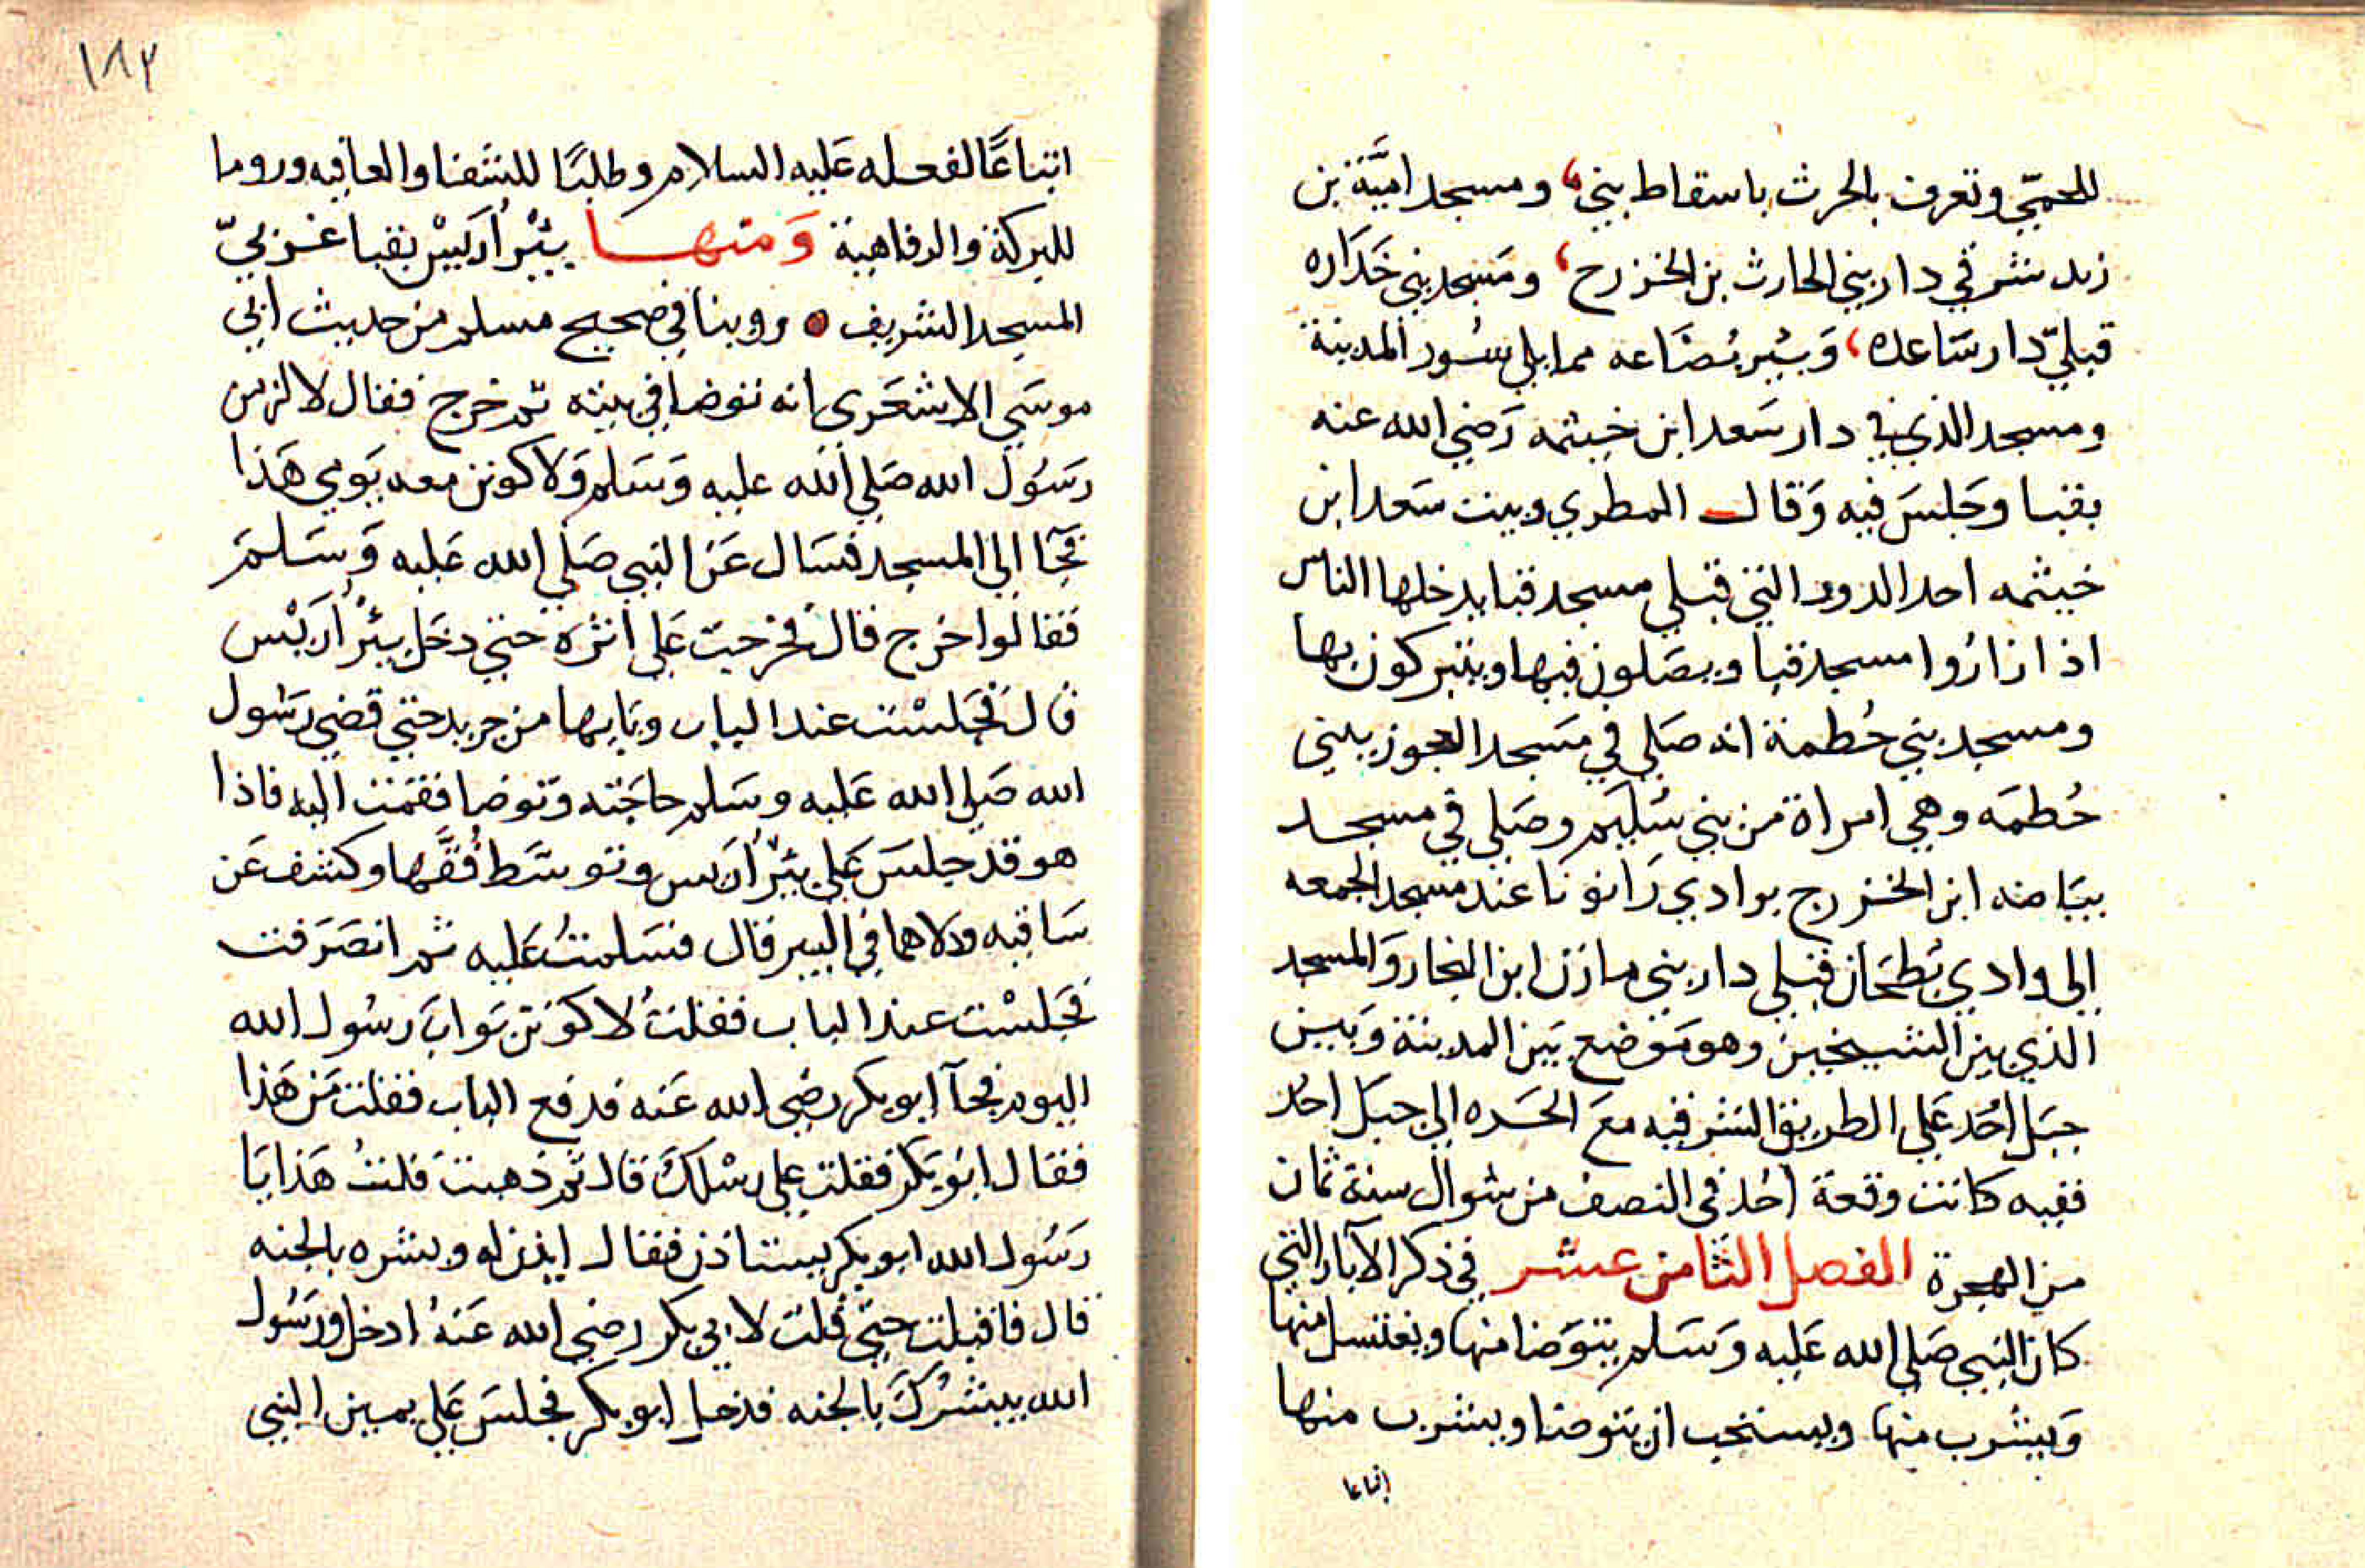 للحميّ وتعرف بالحرث باسقاط بني، ومسجد اميّة بن
زيد شرقي دار بني الحارث بن الخزرج، ومسجد بني خداره
قبليّ دار ساعده، وبير بضاعه مما يلي سور المدينة
ومسجد الذي في دار سعد ابن خيثمه رضي الله عنه
بقبا وجلس فيه وقال المطري وبيت سعد ابن
خيثمه احد الدور التي قبلي مسجد قبا يدخلها الناس
اذا زاروا مسجد قبا ويصلون فيها ويتبركون بها
ومسجد بني حُطمة انه صلي في مسجد العجوز ببني
حُطمه وهي امراة من بني سُليم وصلي في مسجد
بياضه ابن الخزرج بوادي رانونا عند مسجد الجمعه
إلى وادي بُطحان قبلي دار بني مازن ابن النجار والمسجد
الذي بين الشيخين وهو موضع بين المدينة وبين
جبل اُحد على الطريق الشرقيه مع الحره الي جبل احد
ففيه كانت وقعة اُحد في النصف من شوال سنة ثمان
من الهجرة الفصل الثامن عشر في ذكر الآبار التي
كان النبي صلي الله عليه وسلم يتوضا منها ويغتسل منها
ويشرب منها ويستحب ان يتوضا ويشرب منها
اتباعا
١٨٢
اتباعًا لفعله عليه السلام وطلبًا للشفا والعافيه وروما
للبركة والرفاهية ومنها بئر أريس بقبا غربيّ
المسجد الشريف ٥ روينا في صحيح مسلم من حديث ابي
موسي الاشعري انه توضا في بيته ثم خرج فقال لالزمن
رسول الله صلي الله عليه وسلم ولاكونن معه يومي هذا
فجآ الي المسجد فسال عن النبي صلي الله عليه وسلم
فقالوا خرج قال فخرجت على اثره حتي دخل بئر أريس
قال فجلست عند الباب وبابها من جريد حتي قضي رسول
الله صلي الله عليه وسلم حاجته وتوضا فقمت اليه فاذا
هو قد جلس علي بئر أريس وتوسط قُفَّها وكشف عن
ساقيه ودلاهما في البير قال فسلمتُ عليه ثم انصرفت
فجلست عند الباب فقلتُ لاكونن بواب رسول الله
اليوم فجآ ابو بكر رضي الله عنه فدفع الباب فقلت من هذا
فقال ابو بكر فقلت علي رسلك قال ثم ذهبت قلتُ هذا يا
رسول الله ابو بكر يستاذن فقال ايذن له وبشره بالجنه
قال فاقبلت حتي قلت لابي بكر رضي الله عنه ادخل ورسول
الله يبشرك بالجنه فدخل ابو بكر فجلس علي يمين النبي